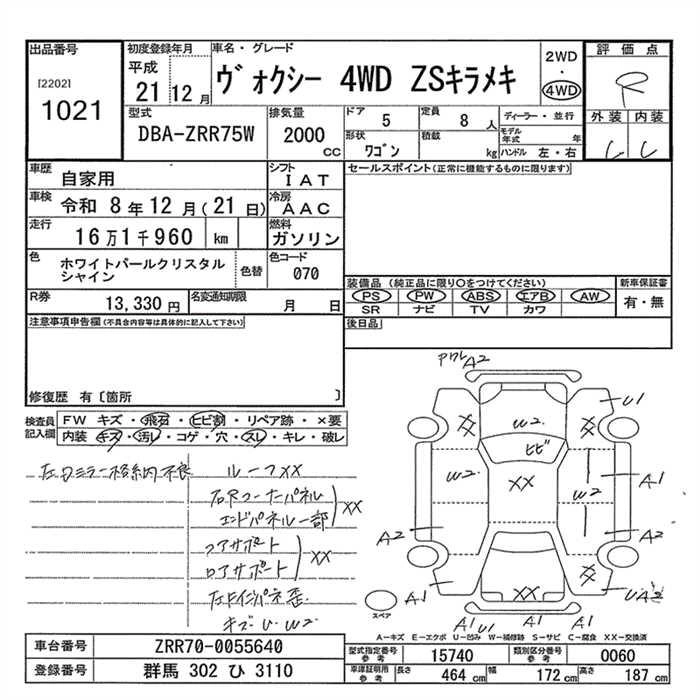 出品番号
[2202]
1021
初度登録年月
平成
21 12 月
車名・グレード
ヴォクシー 4WD ZSキラメキ
2WD
・
4WD
評価点
R
外装 内装
型式
DBA-ZRR75W
排気量
2000
CC
ドア
5
定員
8 人
形状
ワゴン
積載
kg
ディーラー・並行
モデル
年式
年
ハンドル 左・右
車歴
自家用
シフト
I A T
車検
令和 8 年 12 月 ( 21 日)
冷房
A A C
走行
16 万 1 千 960 km
燃料
ガソリン
色
ホワイトパールクリスタル
シャイン
色替
色コード
070
R券
13,330 円
名変通知期限
月 日
セールスポイント(正常に機能するものに限ります)
装備品 (純正品に限り〇をつけてください)
PS PW ABS エアB AW
SR ナビ TV カワ
新車保証書
有・無
後日品
注意事項申告欄(不具合内容等は具体的に記入して下さい)
修復歴 有〔箇所 〕
検査員
記入欄
FW キズ・飛石・ヒビ割・リペア跡・×要
内装・キズ・汚レ・コゲ・穴・スレ・キレ・破レ
左ドミラー格納不良
ルーフXX
右Rコーナーパネル
エンドパネル一部
XX
コアサポート
ロアサポート
XX
キズ U・W2
A2
U1
XX
XX
W2
ヒビ
W2
XX
W2
A1
A2
A2
XX
XX
A1
A1
UA2
スペア
A-キズ E-エクボ U-凹み W-補修跡 S-サビ C-腐食 XX-交換済
車台番号
ZRR70-0055640
登録番号
群馬 302 ひ 3110
型式指定番号
参考
15740
類別区分番号
参考
0060
車庫証明用
参考
長さ
464 cm
幅
172 cm
高さ
187 cm